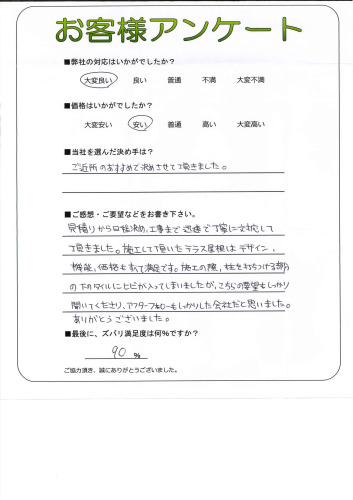 お客様アンケート
■弊社の対応はいかがでしたか？
大変良い 良い 普通 不満 大変不満
■価格はいかがでしたか？
大変安い 安い 普通 高い 大変高い
■当社を選んだ決め手は？
ご近所のおすすめで決めさせて頂きました。
■ご感想・ご要望などをお書き下さい。
見積りから日程決め、工事まで迅速で丁寧に対応して
頂きました。施工して頂いたテラス屋根はデザイン、
機能、価格もすべて満足です。施工の際、柱を打ちつける部分
の下のタイルにヒビが入ってしまいましたが、こちらの要望もしっかり
聞いてくださり、アフターフォローもしっかりした会社だと思いました。
ありがとうございました。
■最後に、ズバリ満足度は何％ですか？
90 ％
ご協力頂き、誠にありがとうございました。